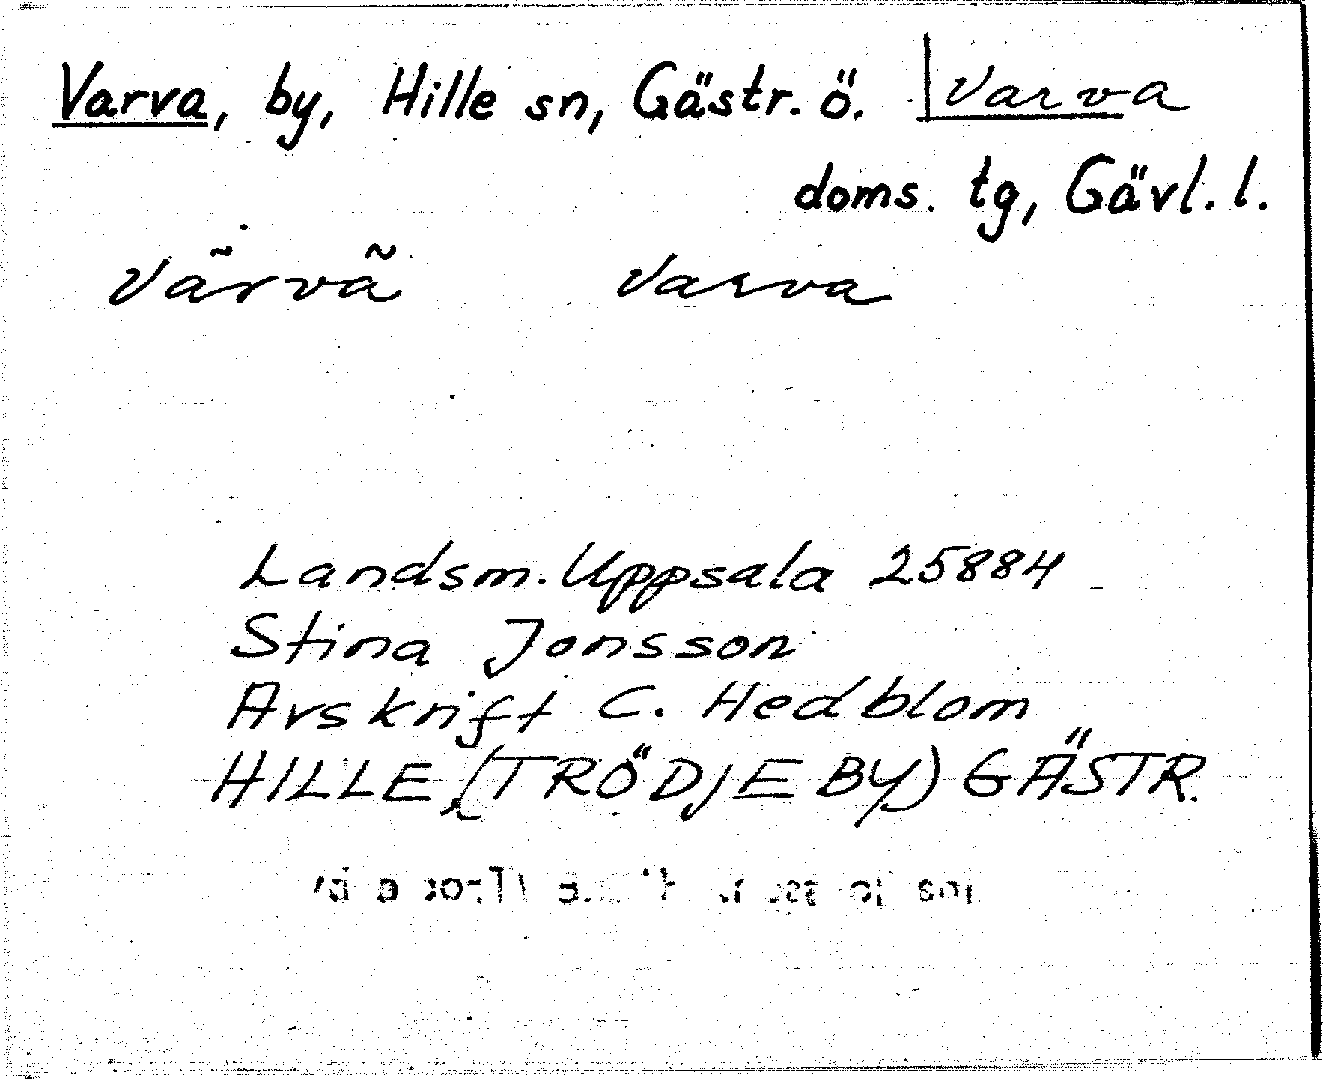 Varva, by, Hille sn, Gästr. ö. Varva
doms. tg, Gävl. l.
Vãrvã Varva
Landsm. Uppsala 25884
Stina Jonsson
Avskrift C. Hedblom
HILLE (TRÖDJE BY) GÄSTR.